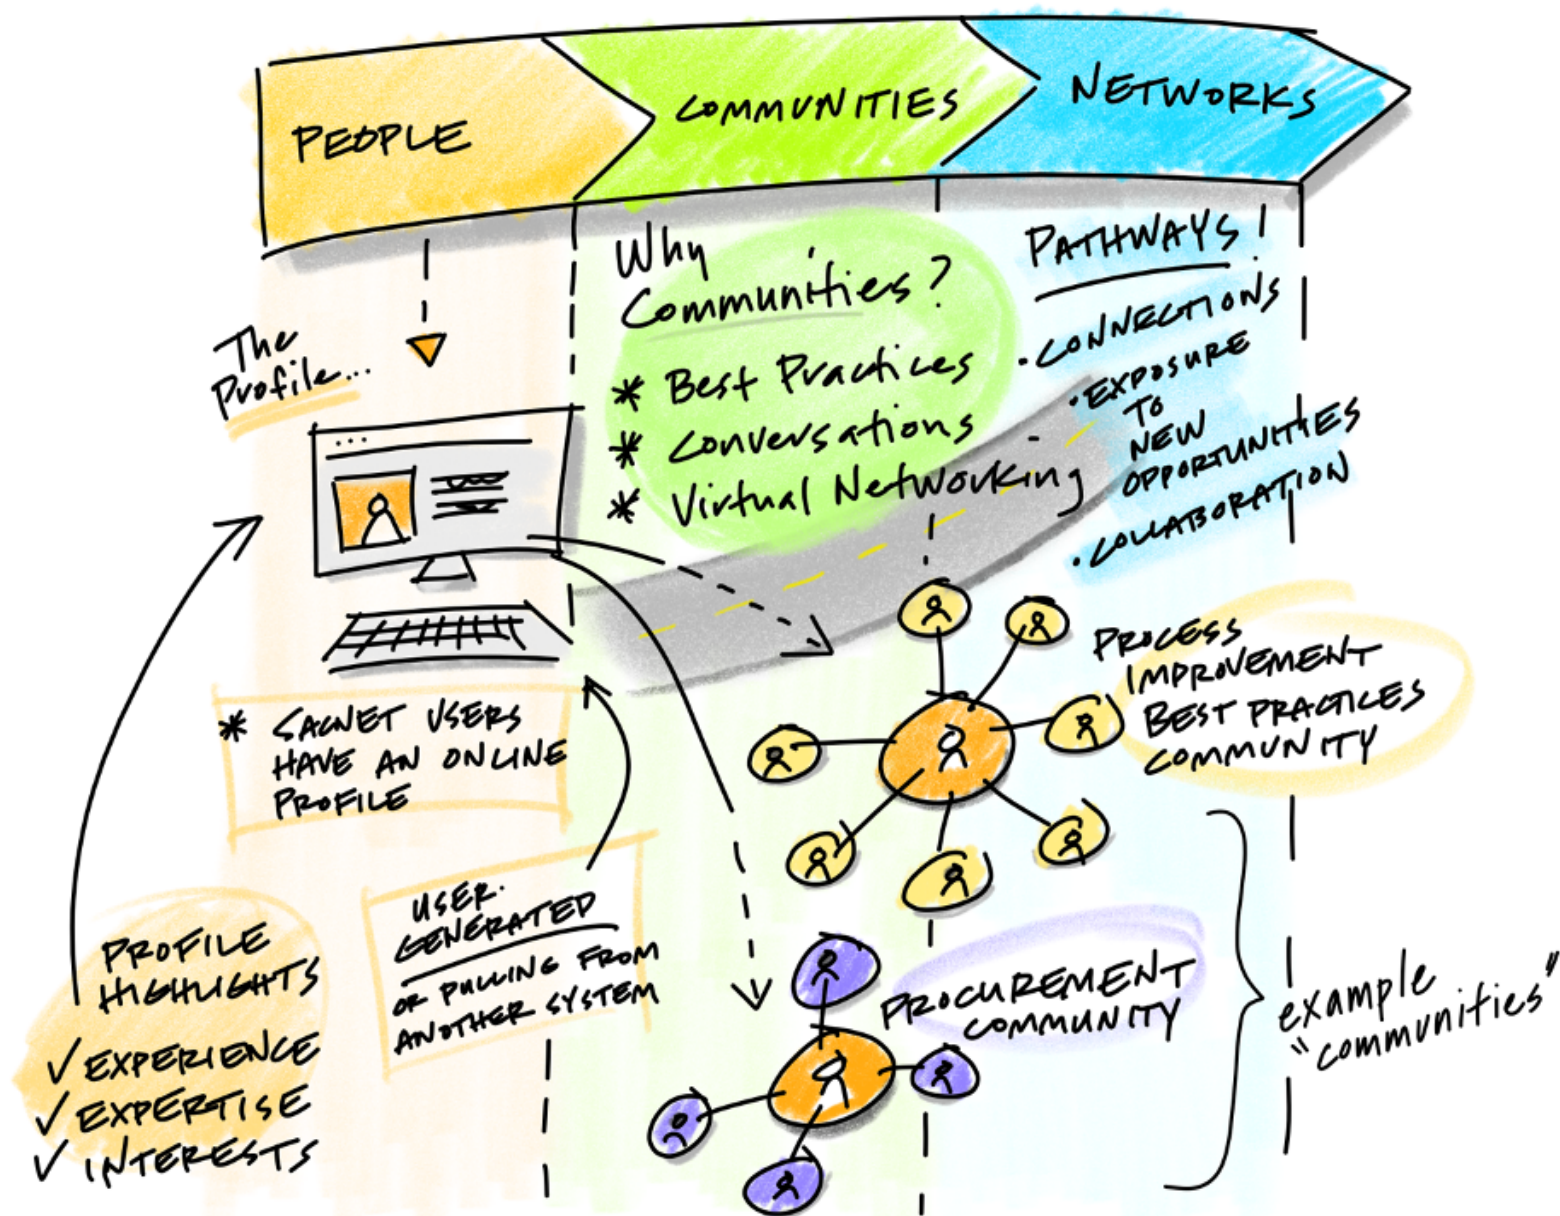 PEOPLE
COMMUNITIES
NETWORKS
The
Profile...
* SAGNET USERS
HAVE AN ONLINE
PROFILE
PROFILE
HIGHLIGHTS
✓ EXPERIENCE
✓ EXPERTISE
✓ INTERESTS
USER-
GENERATED
OR PULLING FROM
ANOTHER SYSTEM
Why
Communities?
* Best Practices
* Conversations
* Virtual Networking
PATHWAYS!
• CONNECTIONS
• EXPOSURE
TO
NEW
OPPORTUNITIES
• COLLABORATION
PROCESS
IMPROVEMENT
BEST PRACTICES
COMMUNITY
PROCUREMENT
COMMUNITY
example
"communities"